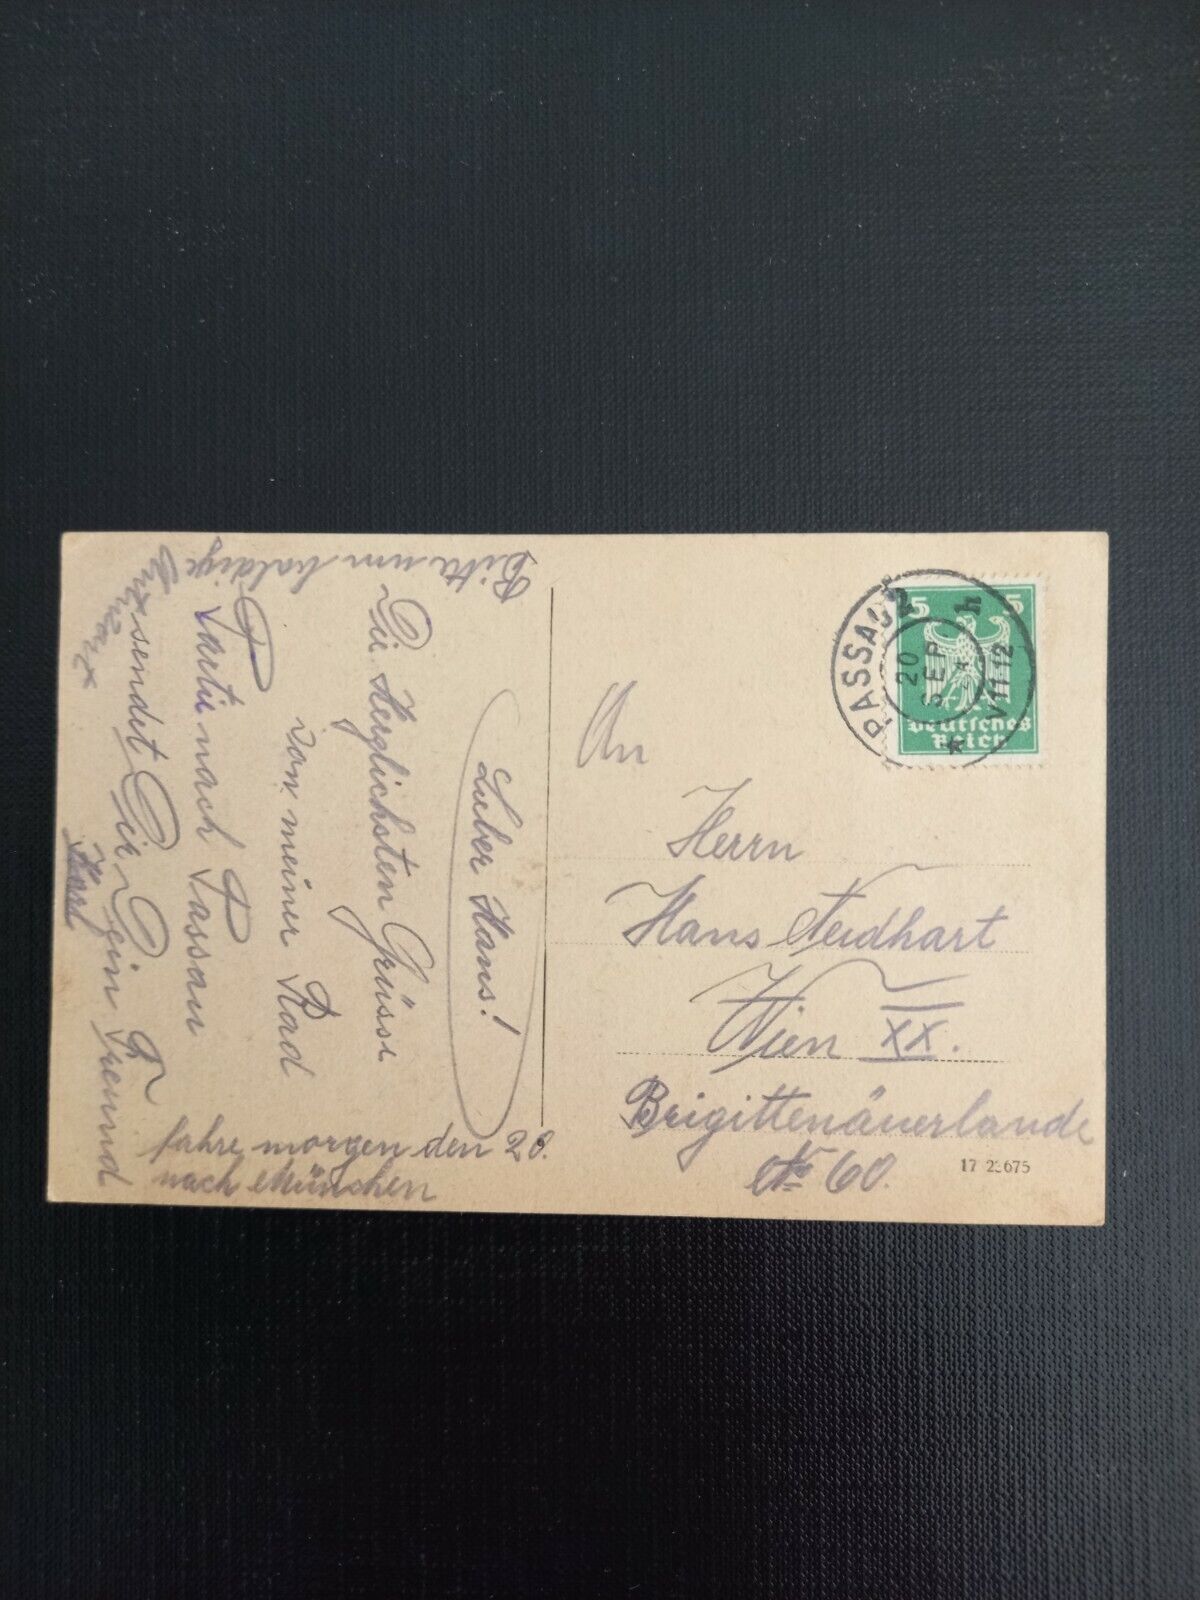 Lieber Hans!
Die Herzlichsten Grüsse
von meiner Rad
Partie nach Passau
sendet Dir Dein Freund
Karl
Bitte um baldige
Antwort
fahre morgen den 20.
nach München
An
Herrn
Hans Neidhart
Wien XX.
Brigittenäuerlände
No 60.
5 5
Deutsches
Reich
PASSAU 2
20
SEP
V 11-12
17 2 675